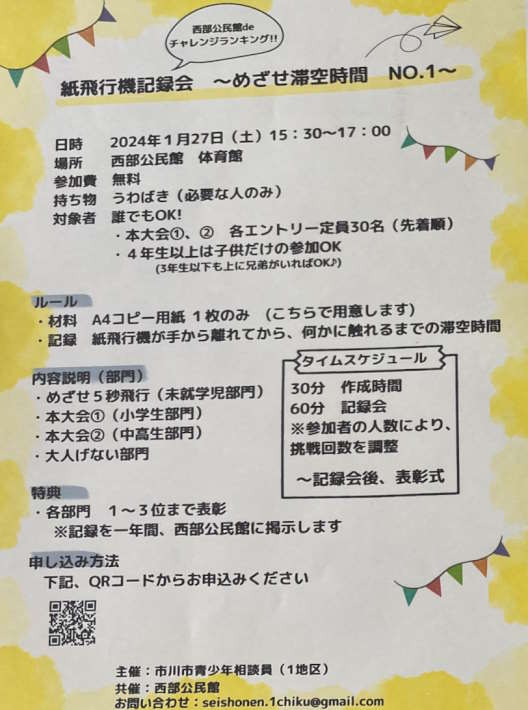 西部公民館de
チャレンジランキング!!
紙飛行機記録会　〜めざせ滞空時間　NO.1〜
日時　2024年１月27日（土）15：30〜17：00
場所　西部公民館　体育館
参加費　無料
持ち物　うわばき（必要な人のみ）
対象者　誰でもOK!
・本大会①、②　各エントリー定員30名（先着順）
・４年生以上は子供だけの参加OK
（3年生以下も上に兄弟がいればOK♪）
ルール
・材料　A4コピー用紙 １枚のみ　（こちらで用意します）
・記録　紙飛行機が手から離れてから、何かに触れるまでの滞空時間
内容説明（部門）
・めざせ５秒飛行（未就学児部門）
・本大会①（小学生部門）
・本大会②（中高生部門）
・大人げない部門
タイムスケジュール
30分　作成時間
60分　記録会
※参加者の人数により、
挑戦回数を調整
〜記録会後、表彰式
特典
・各部門　１〜３位まで表彰
※記録を一年間、西部公民館に掲示します
申し込み方法
下記、QRコードからお申込みください
主催：市川市青少年相談員（1地区）
共催：西部公民館
お問い合わせ：seishonen.1chiku@gmail.com